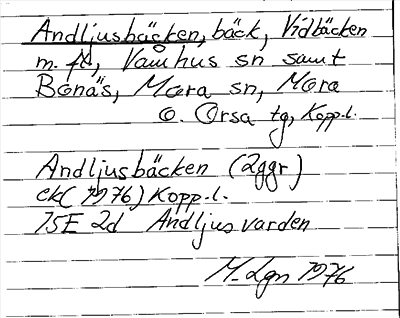 Andljusbäcken, bäck, Vidbäcken
m. fl, Våmhus sn samt
Bonäs, Mora sn, Mora
o. Orsa tg, Kopp.l.
Andljusbäcken (2ggr)
ek (1976) Kopp.l.
15E 2d Andljusvarden
M-Lgn 1976